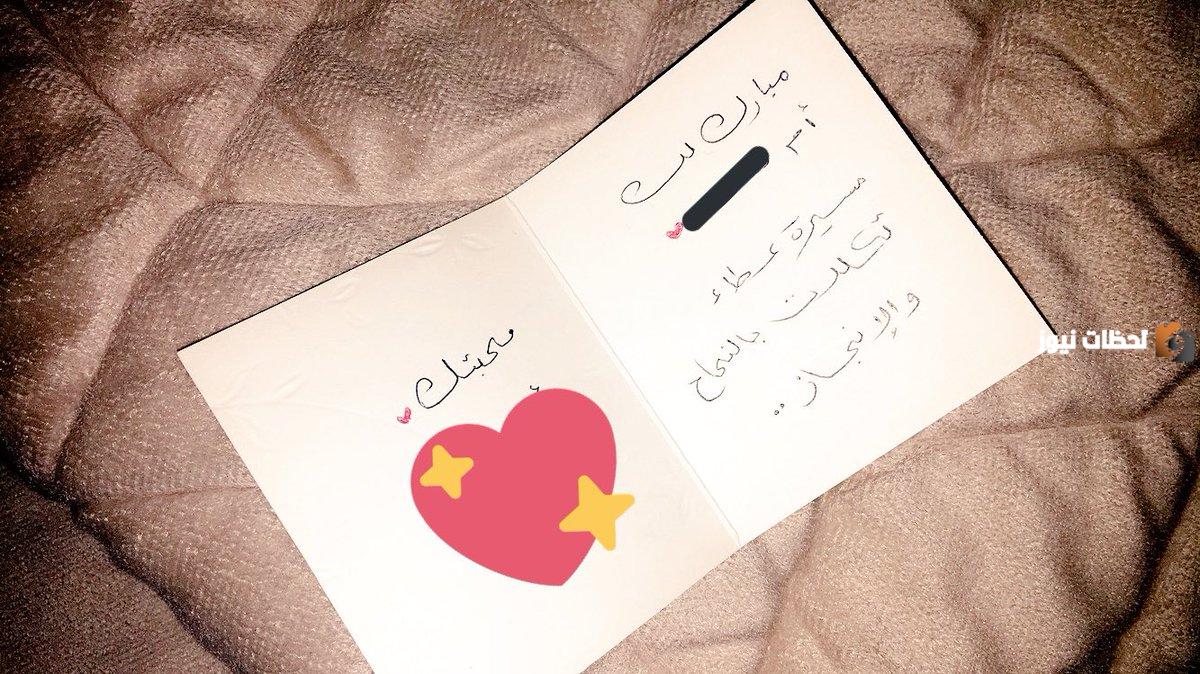 مبارك لك
أ. مـ
مسيرة عطاء
تكللت بالنجاح
والإنجاز..
محبتك
لحظات نيوز